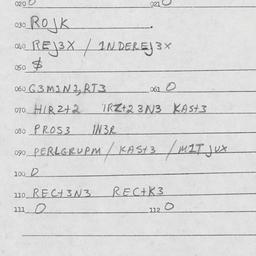 020 0 021 0
030 ROJK
040 REJ3X / INDEREJ3X
050 $
060 G3M1N2,RT3 061 0
070 HIRZ+2 IRZ+23N3 KAS+3
080 PROS3 IN3R
090 PERLGRUPM / KAS+3 / M1TJUX
100 0
110 REC+3N3 REC+K3
111 0 112 0